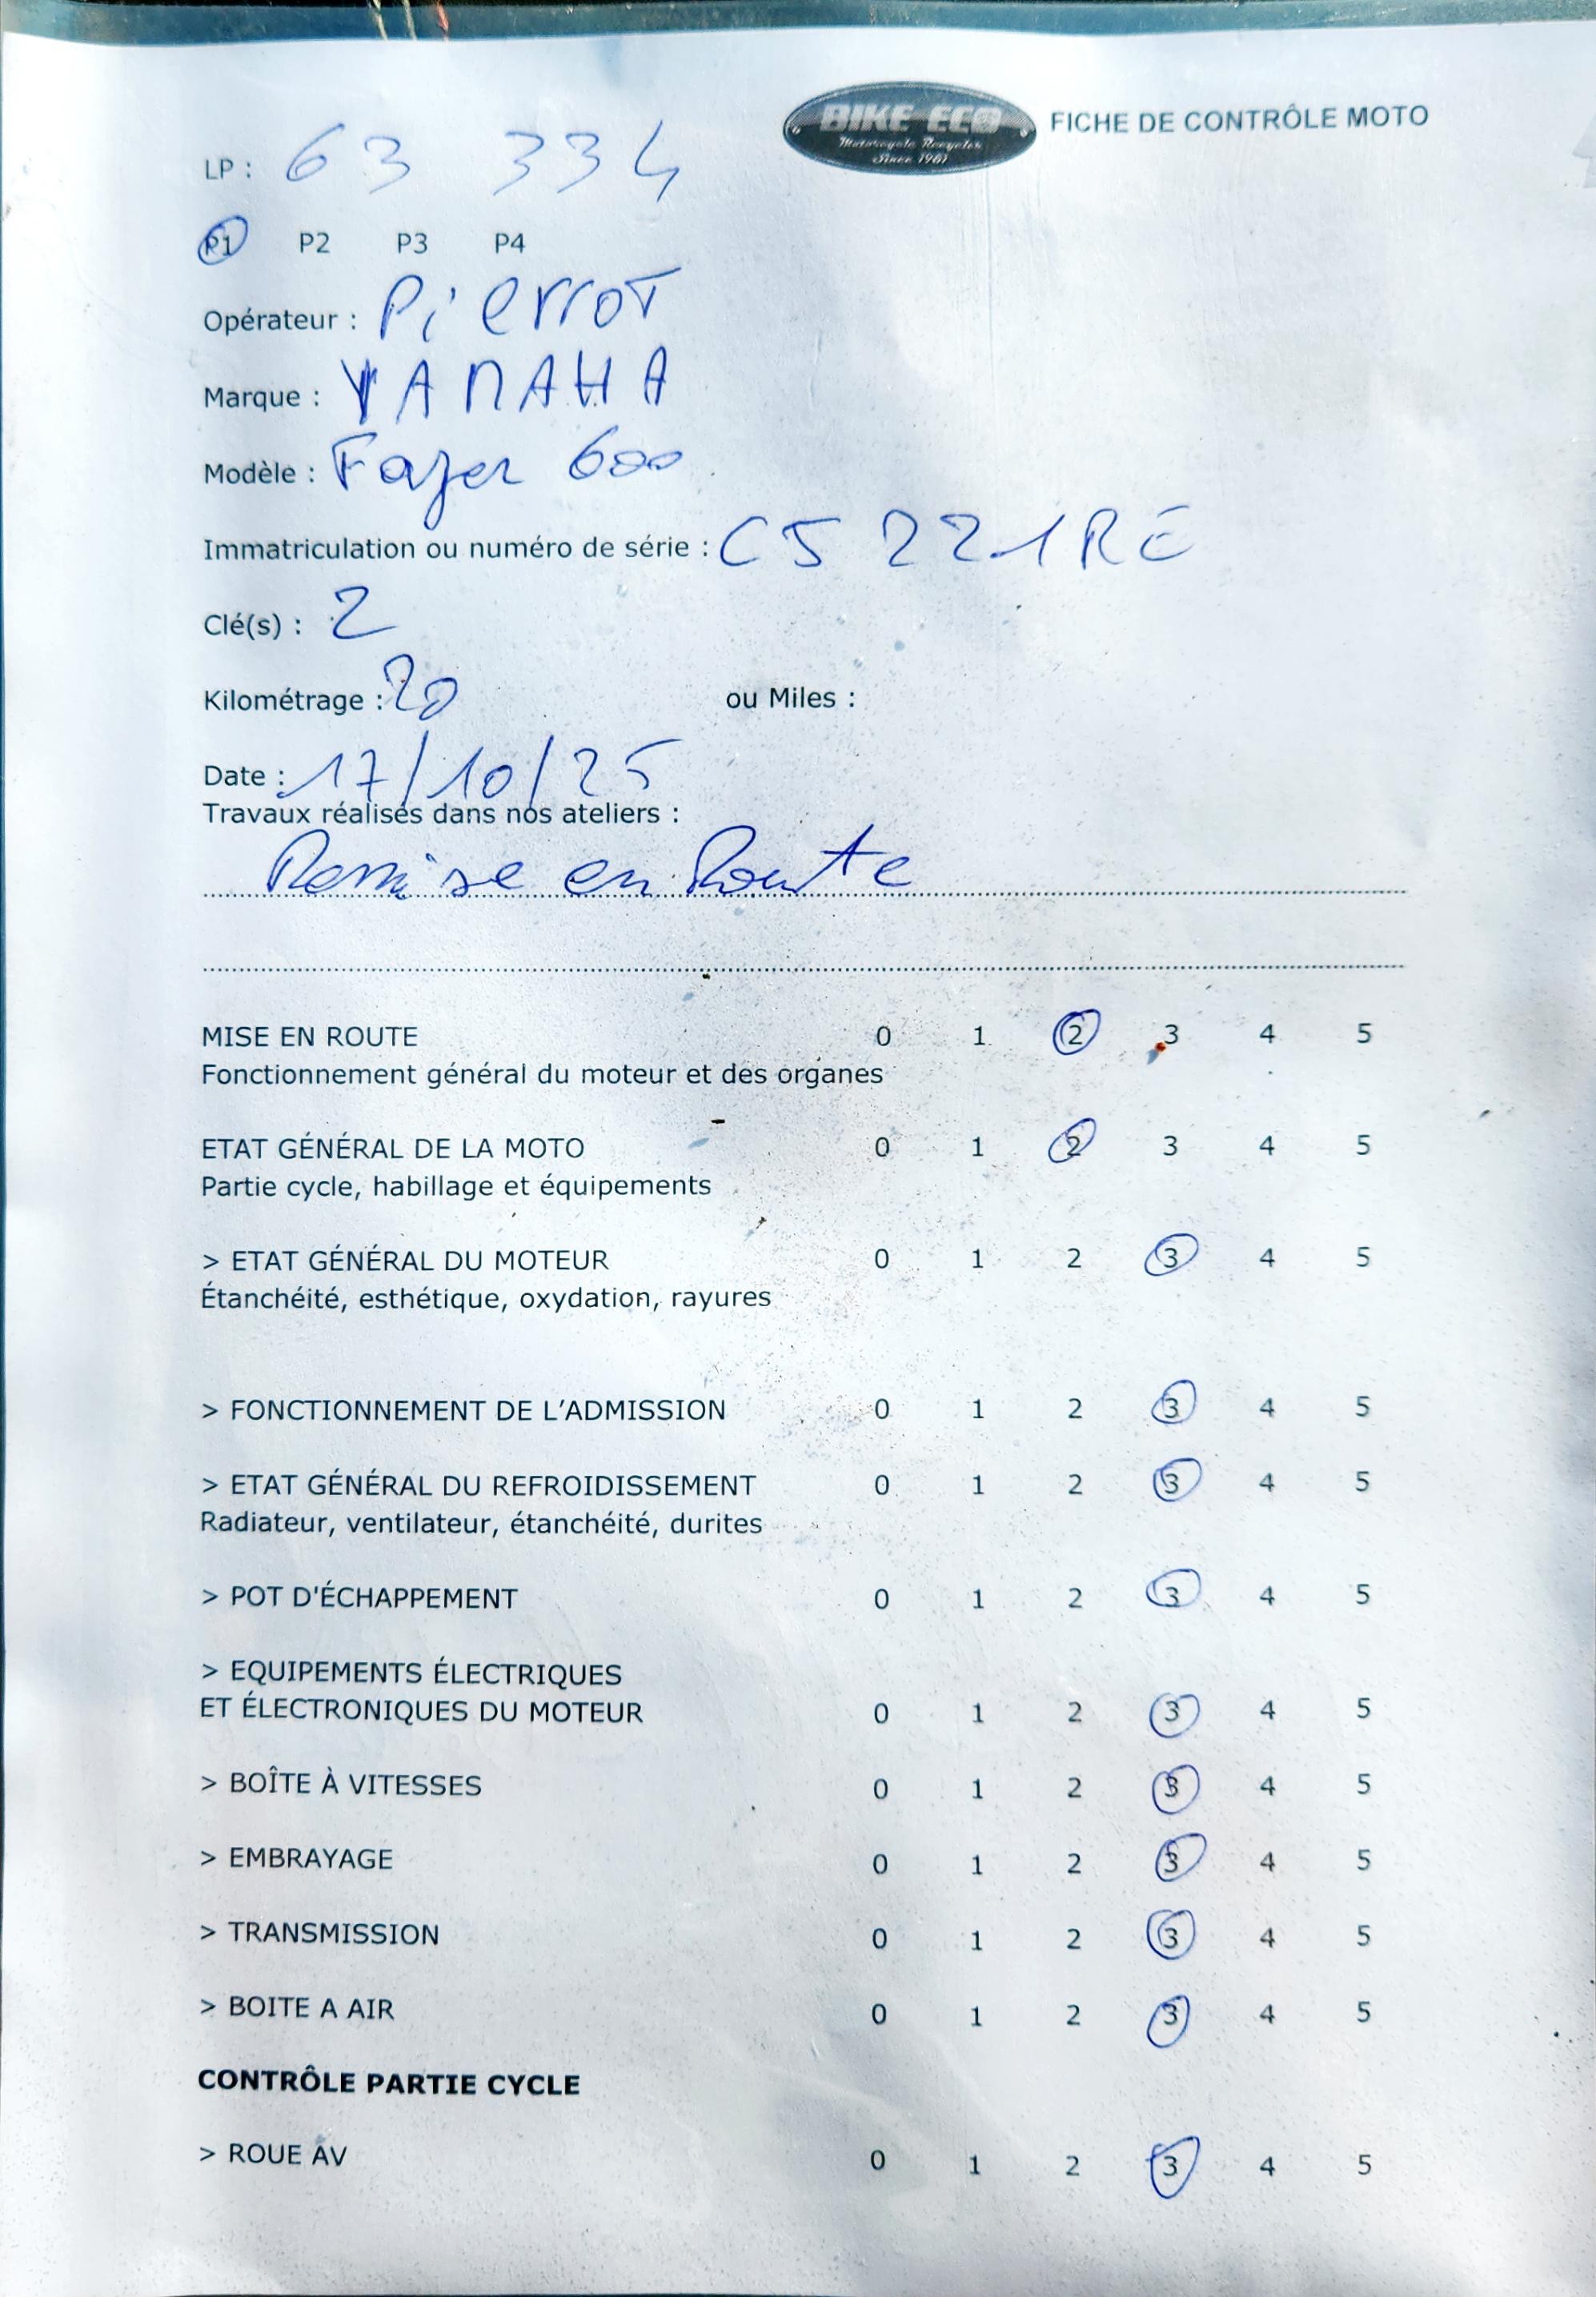 BIKE ECO
Motorcycle Recycler
Since 1961
FICHE DE CONTRÔLE MOTO
LP : 63 334
P1 P2 P3 P4
Opérateur : Pierrot
Marque : YAMAHA
Modèle : Fazer 600
Immatriculation ou numéro de série : C5 221RE
Clé(s) : 2
Kilométrage : 20 ou Miles :
Date : 17/10/25
Travaux réalisés dans nos ateliers :
Remise en Route
MISE EN ROUTE 0 1 2 3 4 5
Fonctionnement général du moteur et des organes
ETAT GÉNÉRAL DE LA MOTO 0 1 2 3 4 5
Partie cycle, habillage et équipements
> ETAT GÉNÉRAL DU MOTEUR 0 1 2 3 4 5
Étanchéité, esthétique, oxydation, rayures
> FONCTIONNEMENT DE L'ADMISSION 0 1 2 3 4 5
> ETAT GÉNÉRAL DU REFROIDISSEMENT 0 1 2 3 4 5
Radiateur, ventilateur, étanchéité, durites
> POT D'ÉCHAPPEMENT 0 1 2 3 4 5
> EQUIPEMENTS ÉLECTRIQUES
ET ÉLECTRONIQUES DU MOTEUR 0 1 2 3 4 5
> BOÎTE À VITESSES 0 1 2 3 4 5
> EMBRAYAGE 0 1 2 3 4 5
> TRANSMISSION 0 1 2 3 4 5
> BOITE A AIR 0 1 2 3 4 5
CONTRÔLE PARTIE CYCLE
> ROUE AV 0 1 2 3 4 5